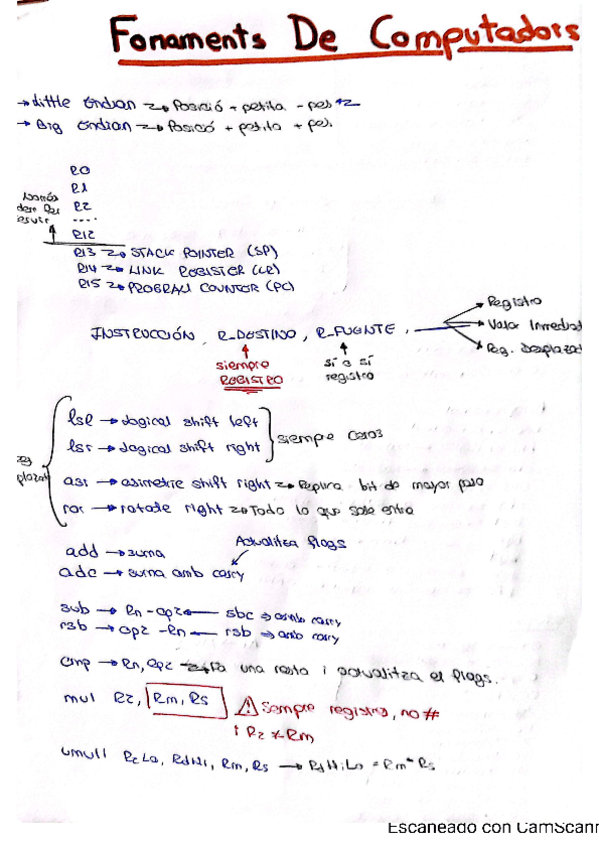 Fonaments De Computadors
→ Little Endian → Posició + petita - pes
→ Big Endian → Posició + petita + pes
R0
R1
R2
....
R12
R13 → STACK POINTER (SP)
R14 → LINK REGISTER (LR)
R15 → PROGRAM COUNTER (PC)
INSTRUCCIÓN, R_DESTINO, R_FUENTE,
Registro
Valor Inmediat
Reg. Desplazad
siempre
REGISTRO
sí o sí
registro
lsl → Logical shift left
lsr → Logical shift right
siempre Ceros
asr → asimetric shift right → Replica bit de mayor peso
ror → rotate right → Todo lo que sale entra
add → suma
Actualitza flags
adc → suma amb carry
sub → Rn - op2 ← sbc → amb carry
rsb → op2 - Rn ← rsb → amb carry
cmp → Rn, op2 → Fa una resta i actualitza el flags.
mul Rz, Rm, Rs
⚠ Sempre registro, no #
i Rz ≠ Rm
umull RdLo, RdHi, Rm, Rs → RdHi:Lo = Rm * Rs
Escaneado con CamScann